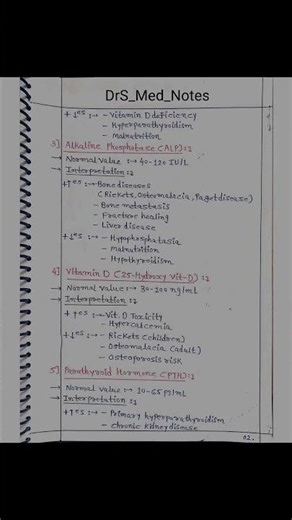 DrS_Med_Notes
+ ↓es :→ - Vitamin D deficiency
- Hyperparathyroidism
- Malnutrition
3] Alkaline Phosphatase (ALP):⤵
→ Normal Value :→ 40-120 IU/L
→ Interpretation :⤵
+↑es :→ - Bone diseases
(Rickets, Osteomalacia, Paget disease)
- Bone metastasis
- Fracture healing
- Liver disease
+ ↓es :→ - Hypophosphatasia
- Malnutrition
- Hypothyroidism
4] Vitamin D (25-Hydroxy Vit-D) :⤵
→ Normal Value :→ 30-100 ng/mL
→ Interpretation :⤵
+ ↑es :→ - Vit. D Toxicity
- Hypercalcemia
+↓es :→ - Rickets (children)
- Osteomalacia (adult)
- Osteoporosis risk
5] Parathyroid Hormone (PTH):⤵
→ Normal Value :→ 10-65 pg/mL
→ Interpretation :⤵
+↑es :→ - Primary hyperparathyroidism
- Chronic Kidney disease
02.